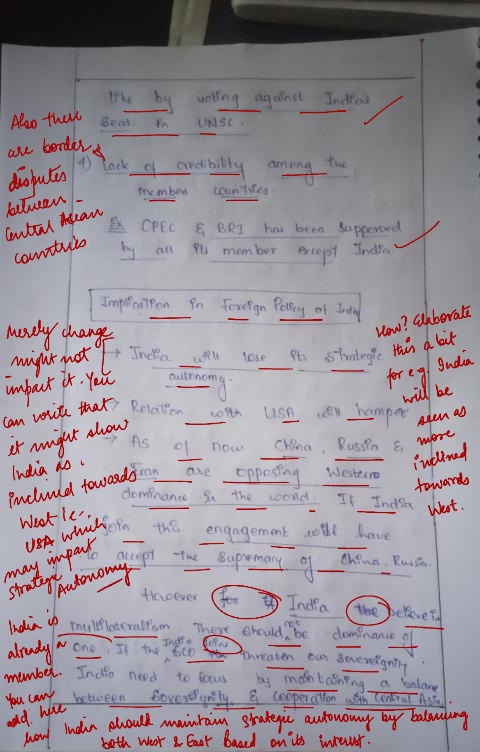 like by voting against India's
Seat in UNSC.
4) Lack of credibility among the
members countries.
Ex CPEC & BRI has been supported
by all its member except India
Also there
are border
disputes
between
Central Asean
countries
Implication in Foreign Policy of India
→ India will lose its strategic
autonomy.
→ Relation with USA will hamper
→ As of now China, Russia &
Iran are opposing Western
dominance in the world. If India
join this engagement will have
to accept the supremacy of China, Russia.
Merely change
might not
impact it. You
can write that
it might show
India as
inclined towards
West i.e.
USA which
may impact
strategic Autonomy
How? Elaborate
this a bit
for e.g. India
will be
seen as
more
inclined
towards
West.
However for India the believe in
multilateralism. There should not be dominance of
one. If the India SCO join threaten our sovereignty
India need to focus by maintaining a balance
between Sovereignity & Cooperation with Central Asia.
India is
already a
member.
You can
add here
how India should maintain strategic autonomy by balancing
both West & East based on its interest.